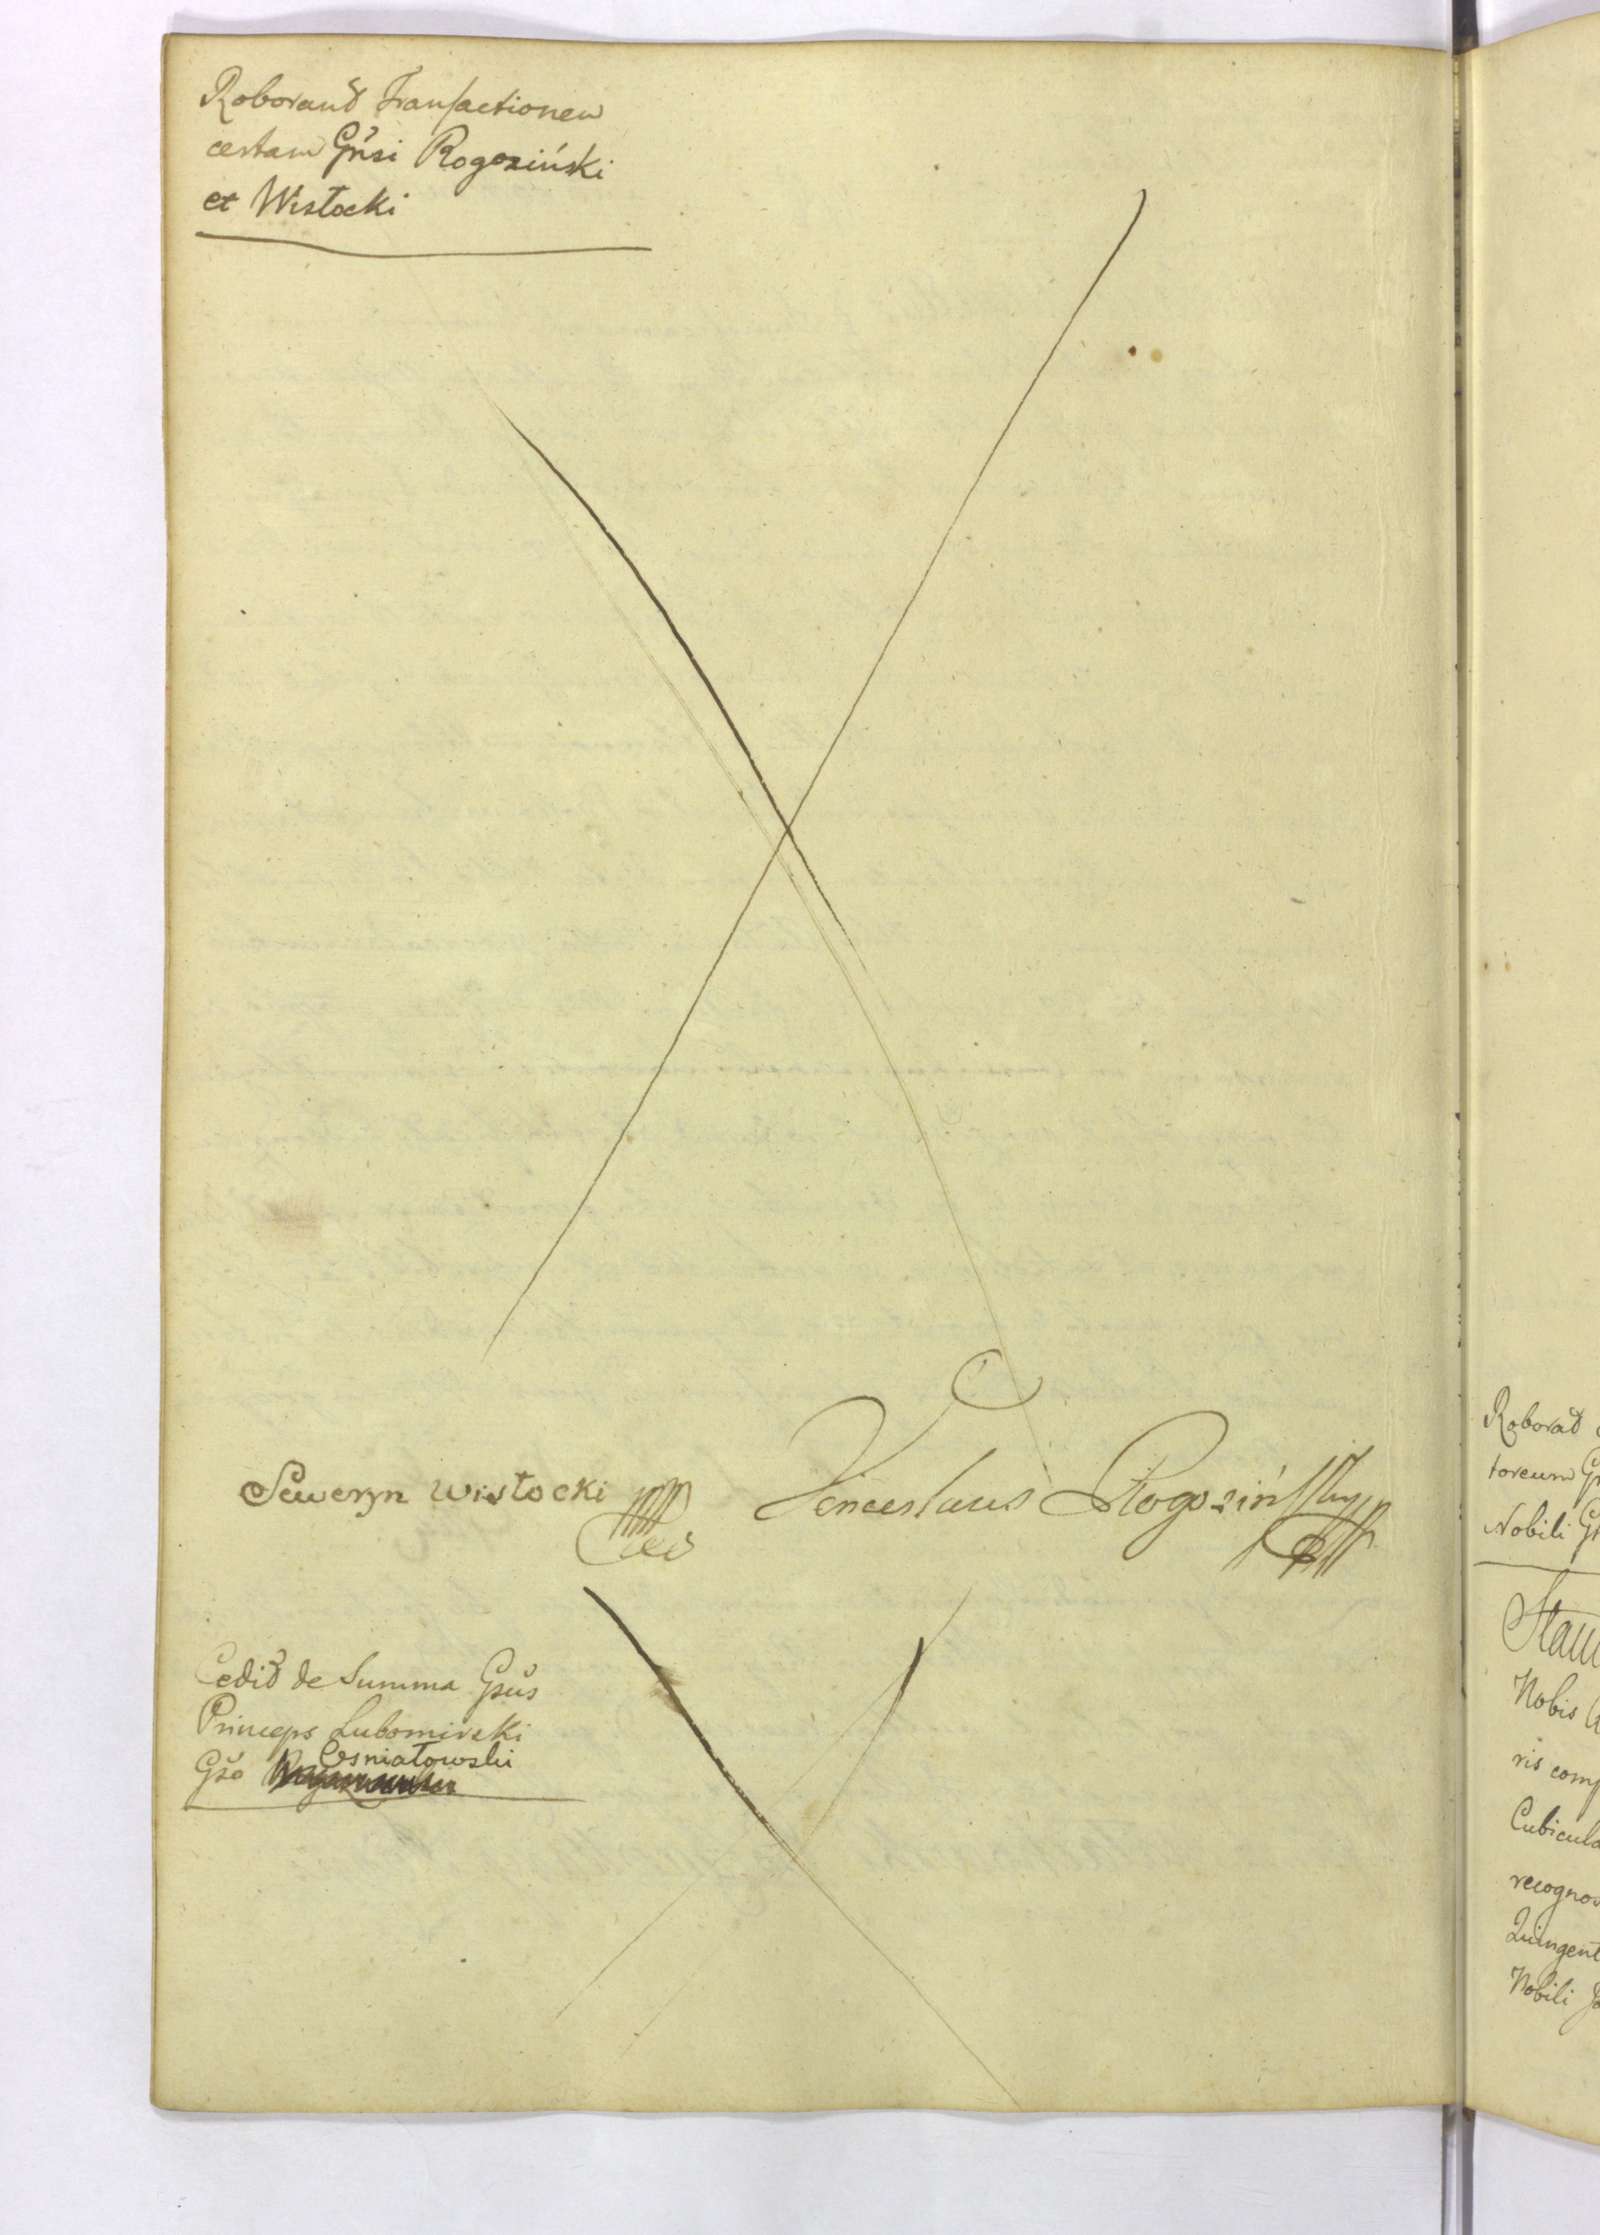 Roborand Transactionem
certam Gnsi Rogoziński
et Wisłocki
Seweryn Wisłocki
Venceslaus Rogozińsky
Cedit de Summa Gsus
Princeps Lubomirski
Cesniatowski
Gso
Roborat
toreum
Nobili
Nobis
ris comp
Cubicula
recognos
Quingent
Nobili